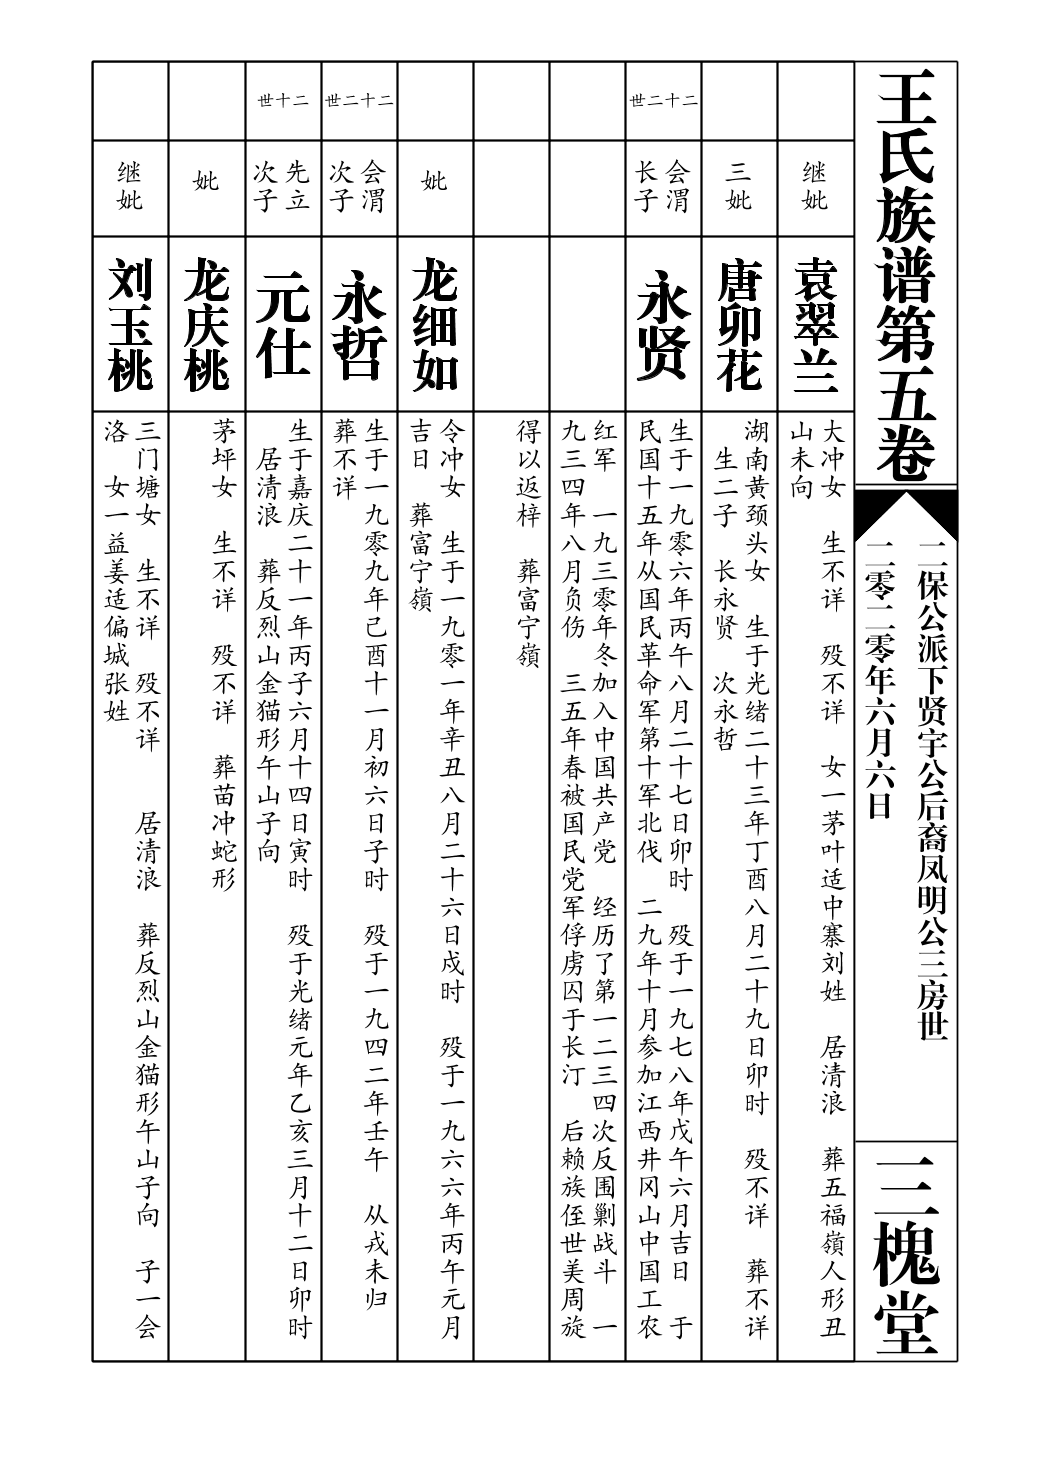 王氏族谱第五卷
二保公派下贤宇公后裔凤明公三房世
二零二零年六月六日
三槐堂
继妣
袁翠兰
大冲女　生不详　殁不详　女一茅叶适中寨刘姓　居清浪　葬五福嶺人形丑
山未向
三妣
唐卯花
湖南黄颈头女　生于光绪二十三年丁酉八月二十九日卯时　殁不详　葬不详
生二子　长永贤　次永哲
二十二世
会渭
长子
永贤
生于一九零六年丙午八月二十七日卯时　殁于一九七八年戊午六月吉日　于
民国十五年从国民革命军第十军北伐　二九年十月参加江西井冈山中国工农
红军　一九三零年冬加入中国共产党　经历了第一二三四次反围剿战斗　一
九三四年八月负伤　三五年春被国民党军俘虏囚于长汀　后赖族侄世美周旋
得以返梓　葬富宁嶺
妣
龙细如
令冲女　生于一九零一年辛丑八月二十六日戍时　殁于一九六六年丙午元月
吉日　葬富宁嶺
二十二世
会渭
次子
永哲
生于一九零九年己酉十一月初六日子时　殁于一九四二年壬午　从戎未归
葬不详
二十世
先立
次子
元仕
生于嘉庆二十一年丙子六月十四日寅时　殁于光绪元年乙亥三月十二日卯时
居清浪　葬反烈山金猫形午山子向
妣
龙庆桃
茅坪女　生不详　殁不详　葬苗冲蛇形
继妣
刘玉桃
三门塘女　生不详　殁不详　　居清浪　葬反烈山金猫形午山子向　子一会
洛　女一益姜适偏城张姓